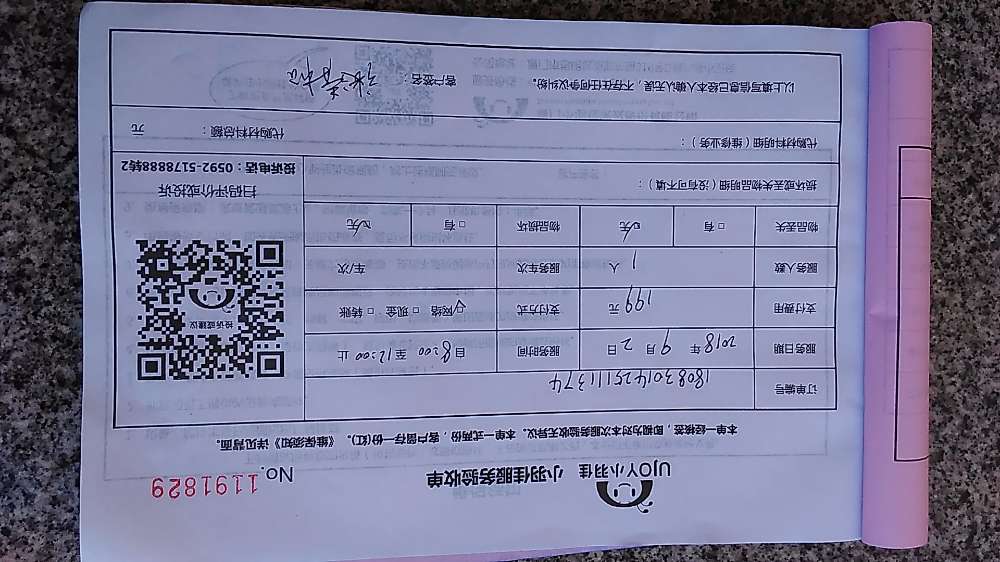 UJOY小羽佳 小羽佳服务验收单
No. 1191829
本单一经接签，即视为对本次服务验收无异议。本单一式两份，客户留存一份(红)。《维保须知》详见背面。
订单编号 1808301425111374
服务日期 2018年9月2日 服务时间 自8:00至12:00止
支付费用 199元 支付方式 网络 □现金 □转账
服务人数 1人 服务车次 车/次
物品丢失 □有 □无 物品损坏 □有 □无
投诉或建议
扫码评价或投诉
投诉电话：0592-5178888转2
损坏或丢失物品明细（没有可不填）：
代购材料明细（维修业务）： 代购材料总额： 元
以上填写信息已经本人确认无误，不存在任何争议纠纷。 客户签名：